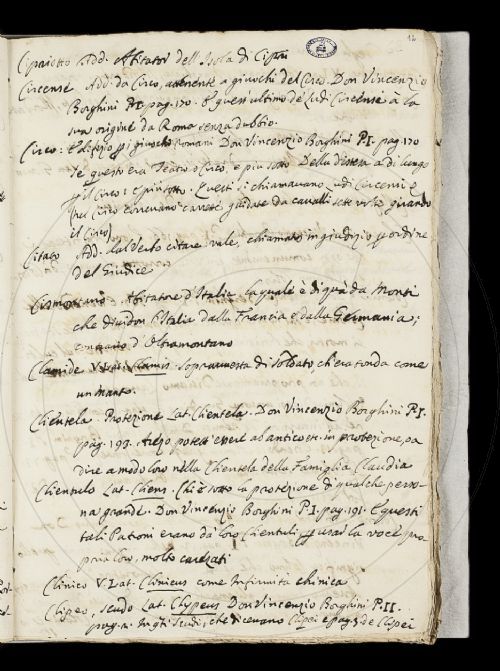 12
Cipriotto Add. Abitator dell'Isola di Cipri
Circense Add. da Circo, attenente a giuochi del Circo. Don Vincenzio
Borghini P.I. pag. 170. E quest'ultimo de' Ludi Circensi à la
sua origine da Roma senza dubbio.
Circo. Edifizio p i giuochi Romani Don Vincenzio Borghini P.I. pag. 170
Se questo era Teatro o Circo, e più sotto Della distesa a di lungo
il Circo: e più sotto. Questi si chiamavano Ludi Circensi e
nel Circo correvano carrette guidate da cavalli sette volte girando
il Circo
Citato Add. dal Verbo citare vale, chiamato in giudizio p ordine
del Giudice
Cismontano. Abitatore d'Italia, la quale è di quà da Monti
che dividon l'Italia dalla Francia e dalla Germania;
contrario d'Oltramontano
Clamide V. Lat. Clamis Sopravvesta di Soldato ch'era tonda come
un manto.
Clientela. Protezione Lat. Clientela. Don Vincenzio Borghini P.I.
pag. 193. Arezo potett' essere ab antico etc. in protezione, o a
dire a modo loro nella Clientela della Famiglia Claudia
Clientulo Lat. Cliens. Chi è sotto la protezione di qualche perso-
na grande. Don Vincenzio Borghini P.I. pag. 191. E questi
tali Patroni erano da loro Clientuli p usar la voce pro-
pria loro, molto carezzati
Clinico V. Lat. Clinicus come Infirmità chinica
Clipeo, Scudo Lat. Clypeus Don Vincenzio Borghini P.II.
pag. In gli Scudi, che dicevano Clipei e pag. de Clipei